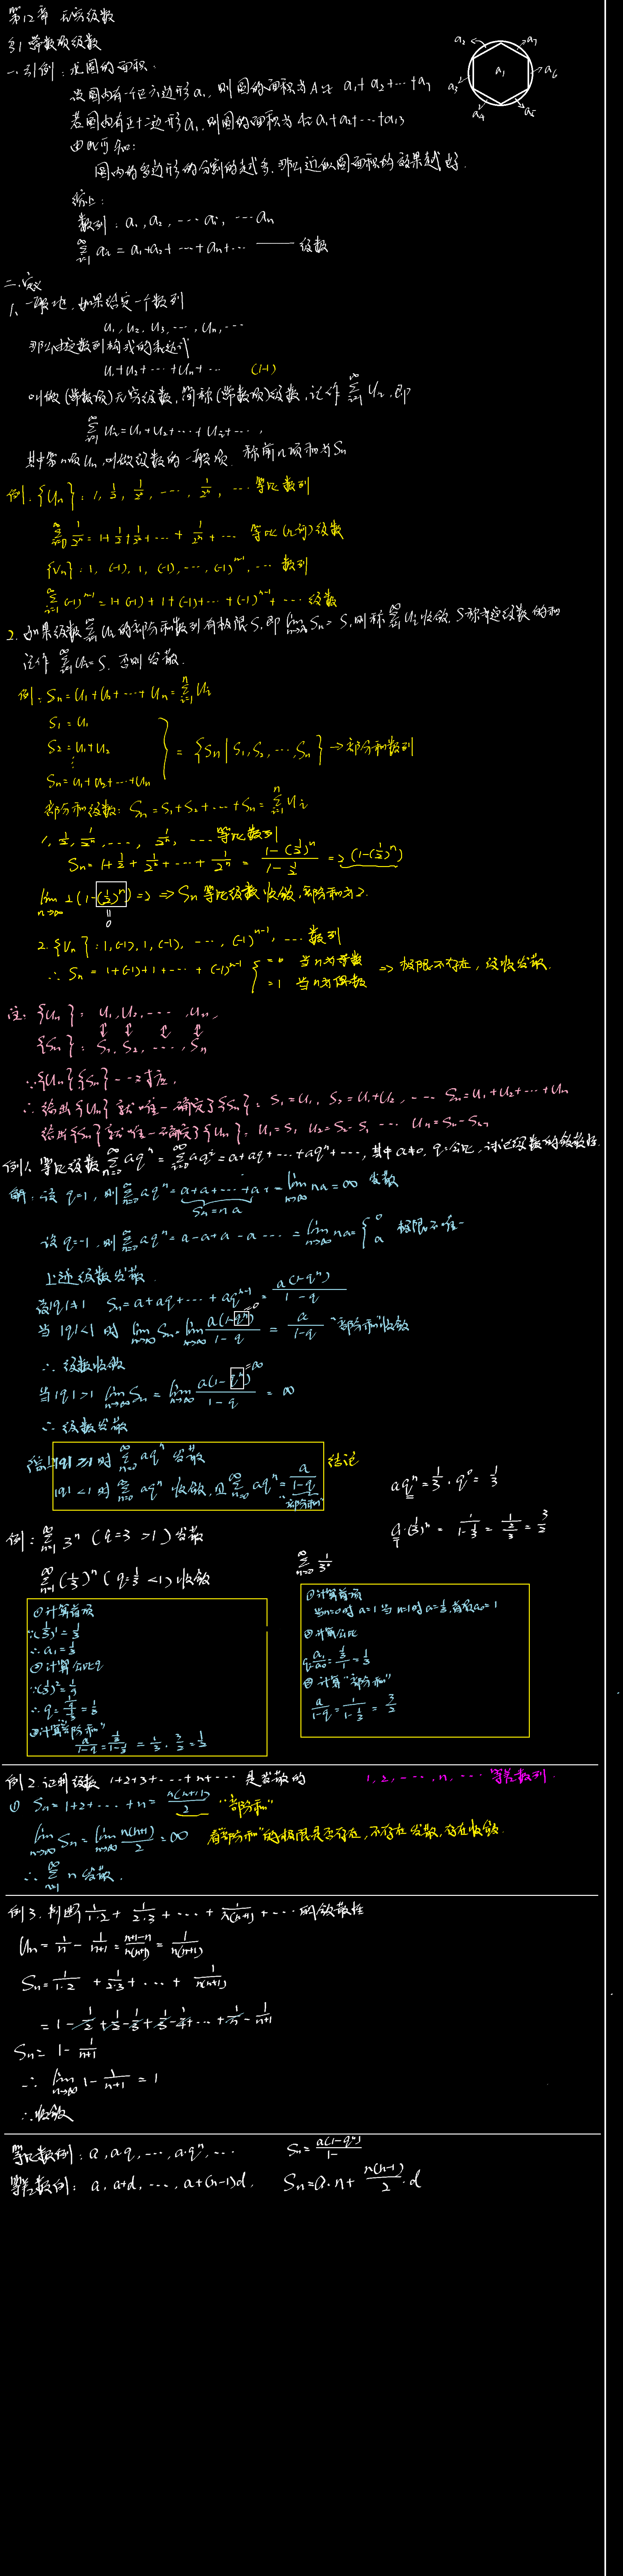 第12章 无穷级数
§1 常数项级数
一.引例:求圆的面积.
设圆内有一个正六边形a₁, 则圆的面积为A≈ a₁+a₂+…+a₇
若圆内有正十二边形a₁, 则圆的面积为A≈a₁+a₂+…+a₁₃
由此可知:
圆内的多边形的分割的越多, 那么近似圆面积的效果越好.
a₂ a₇ a₁ a₆ a₃ a₄ a₅
综上:
数列: a₁, a₂, … aᵢ, … aₙ
∑_{i=1}^∞ aᵢ = a₁+a₂+…+aₙ+… —— 级数
二.定义
1、一般地, 如果给定一个数列
u₁, u₂, u₃, …, uₙ, …
那么由这数列构成的表达式
u₁+u₂+…+uₙ+… (1-1)
叫做(常数项)无穷级数, 简称(常数项)级数, 记作 ∑_{i=1}^∞ uᵢ, 即
∑_{i=1}^∞ uᵢ = u₁+u₂+…+uᵢ+…,
其中第n项uₙ, 叫做级数的一般项. 称前n项和为Sₙ
例: {uₙ}: 1, 1/2, 1/2², …, 1/2ⁿ, … 等比数列
∑_{i=0}^∞ 1/2ⁿ = 1+1/2+1/2²+…+1/2ⁿ+… 等比(几何)级数
{vₙ}: 1, (-1), 1, (-1), …, (-1)ⁿ⁻¹, … 数列
∑_{i=1}^∞ (-1)ⁿ⁻¹ = 1+(-1)+1+(-1)+…+(-1)ⁿ⁻¹+… 级数
2. 如果级数∑_{i=1}^∞ uᵢ的部分和数列有极限S, 即 lim_{n→∞} Sₙ = S, 则称∑_{i=1}^∞ uᵢ收敛. S称为这级数的和
记作 ∑_{i=1}^∞ uᵢ=S. 否则发散.
例: Sₙ = u₁+u₂+…+uₙ = ∑_{i=1}^n uᵢ
S₁ = u₁
S₂ = u₁+u₂
⋮
Sₙ = u₁+u₂+…+uₙ
} = {Sₙ | S₁, S₂, …, Sₙ} → 部分和数列
部分和级数: Sₙ = S₁+S₂+…+Sₙ = ∑_{i=1}^n uᵢ
1, 1/2, 1/2², …, 1/2ⁿ, … 等比数列
Sₙ = 1+1/2+1/2²+…+1/2ⁿ = (1-(1/2)ⁿ)/(1-1/2) = 2(1-(1/2)ⁿ)
lim_{n→∞} 2(1-(1/2)ⁿ) = 2 ⇒ Sₙ 等比级数收敛, 部分和为2.
=0
2. {vₙ}: 1, (-1), 1, (-1), …, (-1)ⁿ⁻¹, … 数列
∴ Sₙ = 1+(-1)+1+…+(-1)ⁿ⁻¹ { =0 当n为奇数
=1 当n为偶数 ⇒ 极限不存在, 级数发散.
注: {uₙ}: u₁, u₂, …, uₙ,
↕ ↕ ↕ ↕
{Sₙ}: S₁, S₂, …, Sₙ
∵ {uₙ}{Sₙ} 一一对应,
∴ 给出{uₙ}就唯一确定了{Sₙ}: S₁=u₁, S₂=u₁+u₂, … Sₙ=u₁+u₂+…+uₙ
给出{Sₙ}就唯一确定了{uₙ}: u₁=S₁ u₂=S₂-S₁ … uₙ=Sₙ-Sₙ₋₁
例1. 等比级数∑_{n=0}^∞ aqⁿ = ∑_{i=0}^∞ aqⁱ = a+aq+…+aqⁿ+…, 其中a≠0, q:公比, 讨论级数的敛散性.
解: 设 q=1, 则∑_{n=0}^∞ aqⁿ = a+a+…+a+ = lim_{n→∞} na = ∞ 发散
Sₙ=na
设 q=-1, 则∑_{n=0}^∞ aqⁿ = a-a+a-a… = lim_{n→∞} na = {0 a 极限不唯一
上述级数发散.
设|q|≠1 Sₙ = a+aq+…+aqⁿ⁻¹ = a(1-qⁿ)/(1-q)
当|q|<1时 lim_{n→∞} Sₙ = lim_{n→∞} a(1-qⁿ)/(1-q) = a/(1-q) "部分和"收敛
∴ 级数收敛
当|q|>1 lim_{n→∞} Sₙ = lim_{n→∞} a(1-qⁿ)/(1-q) = ∞
∴ 级数发散
综上 |q|≥1时 ∑_{n=0}^∞ aqⁿ 发散 结论
|q|<1时 ∑_{n=0}^∞ aqⁿ 收敛, 且∑_{n=0}^∞ aqⁿ = a/(1-q)
"部分和"
aqⁿ = 1/3·q⁰ = 1/3
a·(1/3)ⁿ = 1/(1-1/3) = 1/(2/3) = 3/2
例: ∑_{n=1}^∞ 3ⁿ (q=3>1) 发散
∑_{n=1}^∞ (1/3)ⁿ (q=1/3<1) 收敛
① 计算首项
∵(1/3)¹=1/3
∴ a₁=1/3
② 计算公比q
∵(1/3)²=1/9
∴ q=(1/9)/(1/3)=1/3
③ 计算"部分和"
a/(1-q) = (1/3)/(1-1/3) = 1/3·3/2 = 1/2
∑_{n=0}^∞ 1/3ⁿ
① 计算首项
当n=0时 a=1 当n=1时 a=1/3, 首项a₀=1
② 计算公比
q=a₁/a₀=(1/3)/1=1/3
③ 计算"部分和"
a/(1-q) = 1/(1-1/3) = 3/2
例2. 证明级数 1+2+3+…+n+… 是发散的 1, 2, …, n, … 等差数列.
① Sₙ=1+2+…+n = n(n+1)/2 "部分和"
lim_{n→∞} Sₙ = lim_{n→∞} n(n+1)/2 = ∞ 看"部分和"的极限是否存在, 不存在发散, 存在收敛.
∴ ∑_{n=1}^∞ n 发散.
例3. 判断 1/(1·2) + 1/(2·3) + … + 1/(n(n+1)) + … 的敛散性
uₙ = 1/n - 1/(n+1) = (n+1-n)/(n(n+1)) = 1/(n(n+1))
Sₙ = 1/(1·2) + 1/(2·3) + … + 1/(n(n+1))
= 1 - 1/2 + 1/2 - 1/3 + 1/3 - 1/4 + … + 1/n - 1/(n+1)
Sₙ = 1 - 1/(n+1)
∴ lim_{n→∞} 1 - 1/(n+1) = 1
∴ 收敛
等比数列: a, aq, …, a·qⁿ, … Sₙ = a(1-qⁿ)/1-
等差数列: a, a+d, …, a+(n-1)d, Sₙ = a·n + n(n-1)/2·d